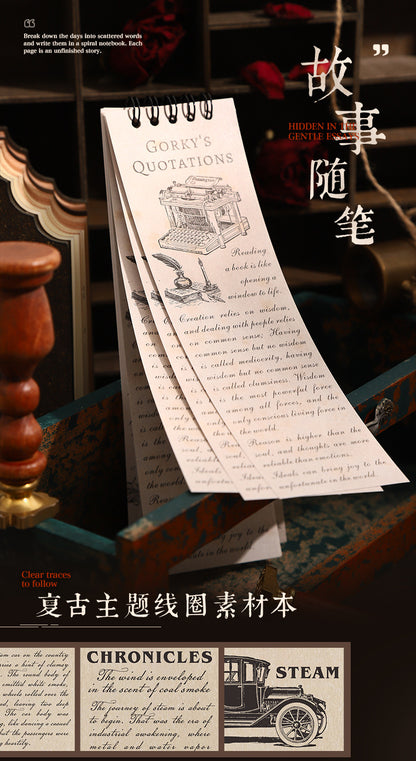 Break down the days into scattered words
and write them in a spiral notebook. Each
page is an unfinished story.
故事随笔
HIDDEN IN THE
GENTLE
GORKY'S
QUOTATIONS
Reading
a book is like
opening a
window to life.
Creation relies on wisdom,
and dealing with people relies
on common sense; Having
common sense but no wisdom
is called mediocrity, having
wisdom but no common sense
is called clumsiness. Wisdom
is the most powerful force
among all forces, and the
only conscious living force in
the world.
Reason is higher than the
soul, and thoughts are more
reliable than emotions.
Ideals can bring joy to the
unfortunate in the world.
Clear traces
to follow
复古主题线圈素材本
car on the country
CHRONICLES
The wind is enveloped
in the scent of coal smoke
The journey of steam is about
to begin. That was the era of
industrial awakening, where
metal and water vapor
STEAM